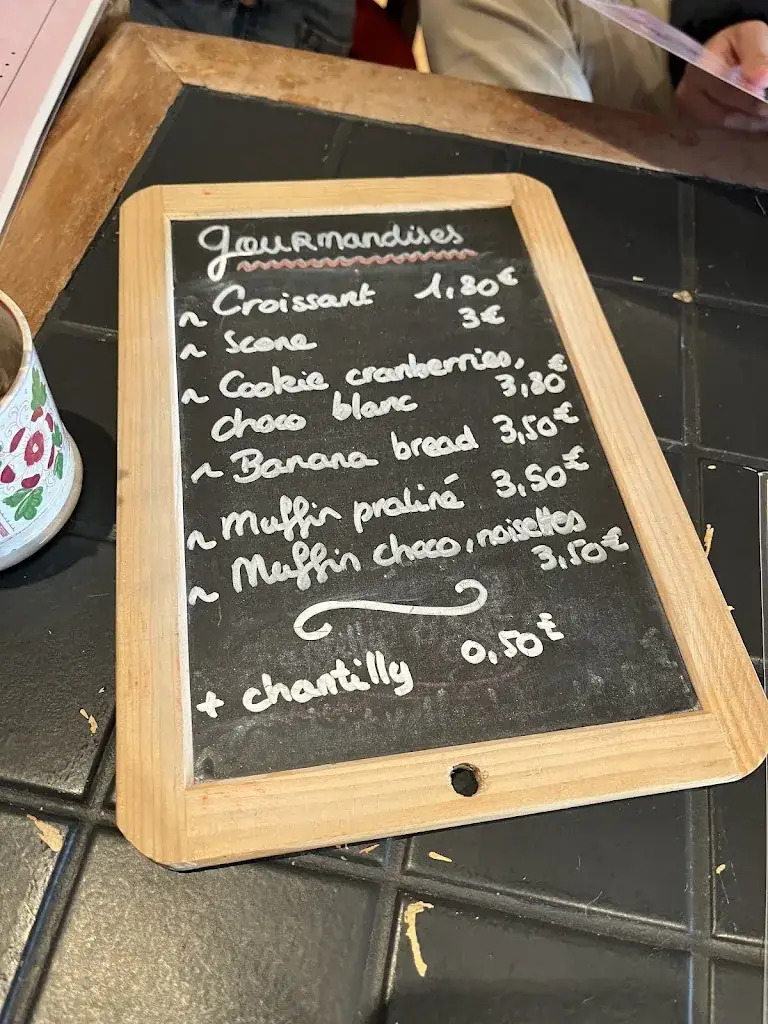 Gourmandises
~ Croissant 1,80€
~ Scone 3€
~ Cookie cranberries,
choco blanc 3,80€
~ Banana bread 3,50€
~ Muffin praliné 3,50€
~ Muffin choco, noisettes
3,50€
+ chantilly 0,50€